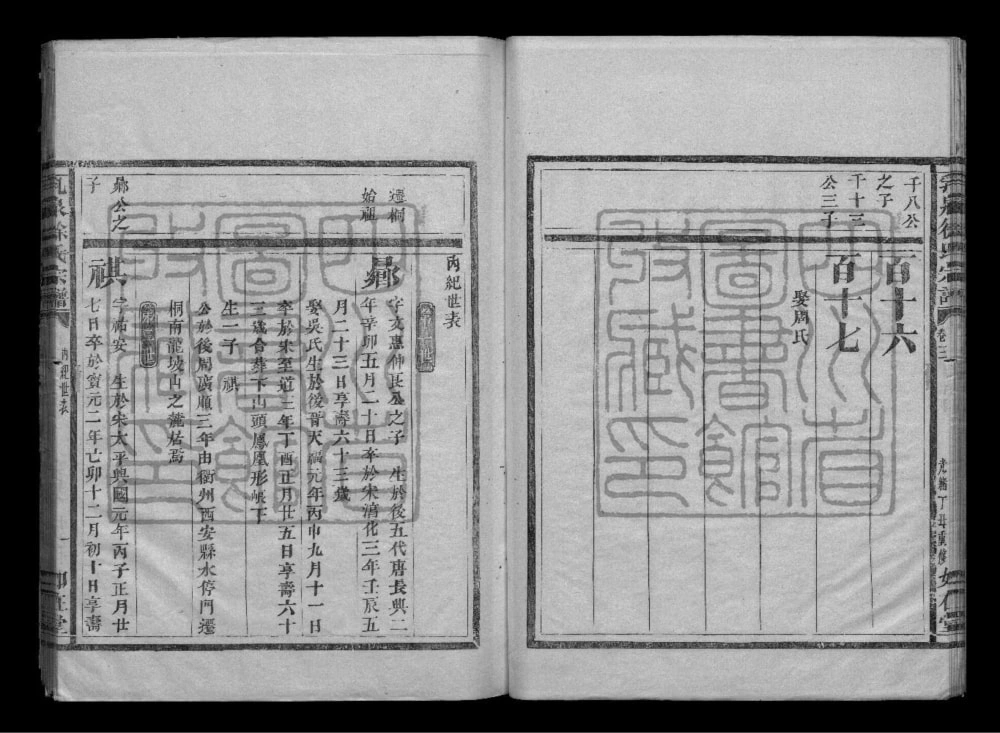 千八公
之子
一百十六
千十三
公三子
一百十七
娶周氏
徐氏宗譜
卷三
光緒丁丑重脩
丙紀世表
遷桐
始祖
字文惠仲氏公之子 生於後五代唐長興二
年辛卯五月二十日卒於宋淳化三年壬辰五
月二十三日享壽六十三歲
娶吳氏生於後晉天福元年丙申九月十一日
卒於宋至道三年丁酉正月廿五日享壽六十
三歲合葬下山頭鳳凰形帳下
生一子 祺
公於後周廣順三年由衢州西安縣水停門遷
桐南龍坡山之麓居焉
公之
子
祺
字祐安 生於宋太平興國元年丙子正月廿
七日卒於寶元二年己卯十二月初十日享壽
徐氏宗譜
丙紀世表
四川省圖書館收藏印